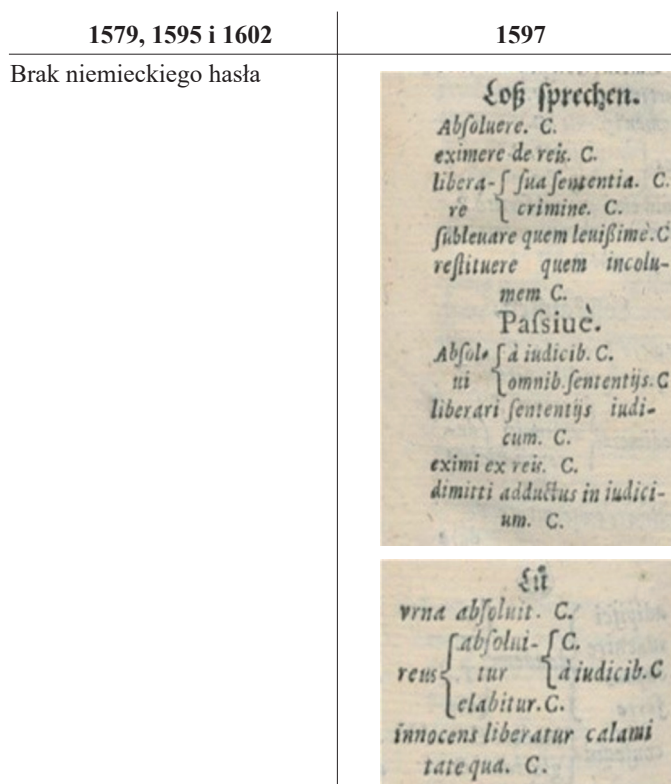 1579, 1595 i 1602
1597
Brak niemieckiego hasła
Loß ſprechen.
Abſoluere. C.
eximere de reis. C.
libera- { ſua ſententia. C.
re { crimine. C.
ſubleuare quem leuißimè. C
reſtituere quem incolu-
mem C.
Paſsiuè.
Abſol- { à iudicib. C.
ui { omnib. ſententijs. C
liberari ſententijs iudi-
cum. C.
eximi ex reis. C.
dimitti adductus in iudici-
um. C.
Lů
vrna abſoluit. C.
abſolui- { C.
reus { tur { à iudicib. C
elabitur. C.
innocens liberatur calami
tate qua. C.